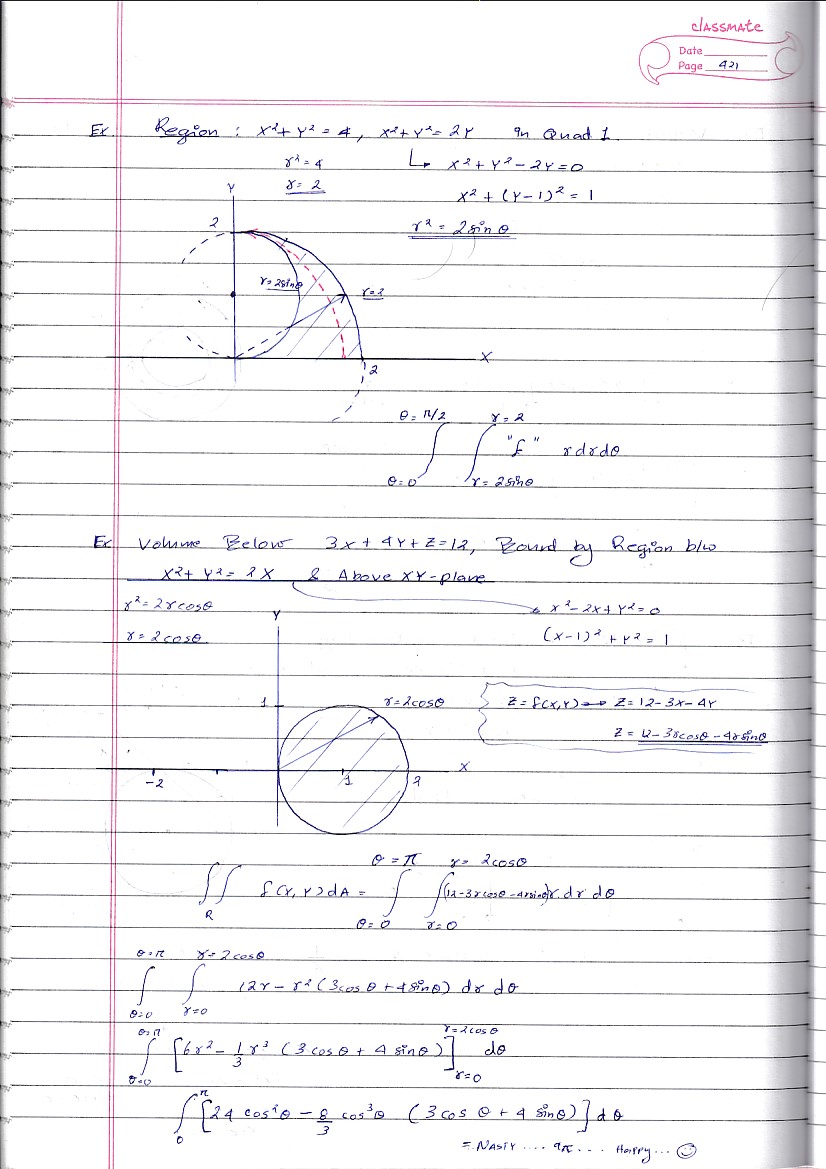 classmate
Date
Page 421
Ex. Region : x²+ y² = 4 , x²+ y² = 2y in Quad 1
r² = 4 ↳ x² + y² - 2y = 0
r = 2 x² + (y-1)² = 1
r² = 2sinθ
Y
2
r=2sinθ
r=2
X
2
θ = π/2 r = 2
∫ ∫ "f" r dr dθ
θ=0 r = 2sinθ
Ex Volume Below 3x + 4y + z = 12, Bound by Region b/w
x²+ y² = 2x & Above XY-plane
r² = 2r cosθ x² - 2x + y² = 0
r = 2 cosθ (x-1)² + y² = 1
Y
1
r=2cosθ
z = f(x,y) → z = 12 - 3x - 4y
z = 12 - 3r cosθ - 4r sinθ
X
-2 1 2
θ = π r = 2cosθ
∫∫ f(x,y) dA = ∫ ∫ (12-3r cosθ -4r sinθ) r. dr dθ
R θ = 0 r=0
θ=π r = 2cosθ
∫ ∫ 12r - r² (3cosθ + 4sinθ) dr dθ
θ=0 r=0
θ=π r=2cosθ
∫ [6r² - 1/3 r³ (3cosθ + 4 sinθ)] dθ
θ=0 r=0
∫₀^π [24 cos²θ - 8/3 cos³θ (3cos θ + 4 sinθ)] dθ
= Nasty .... 9π... Happy... ☺